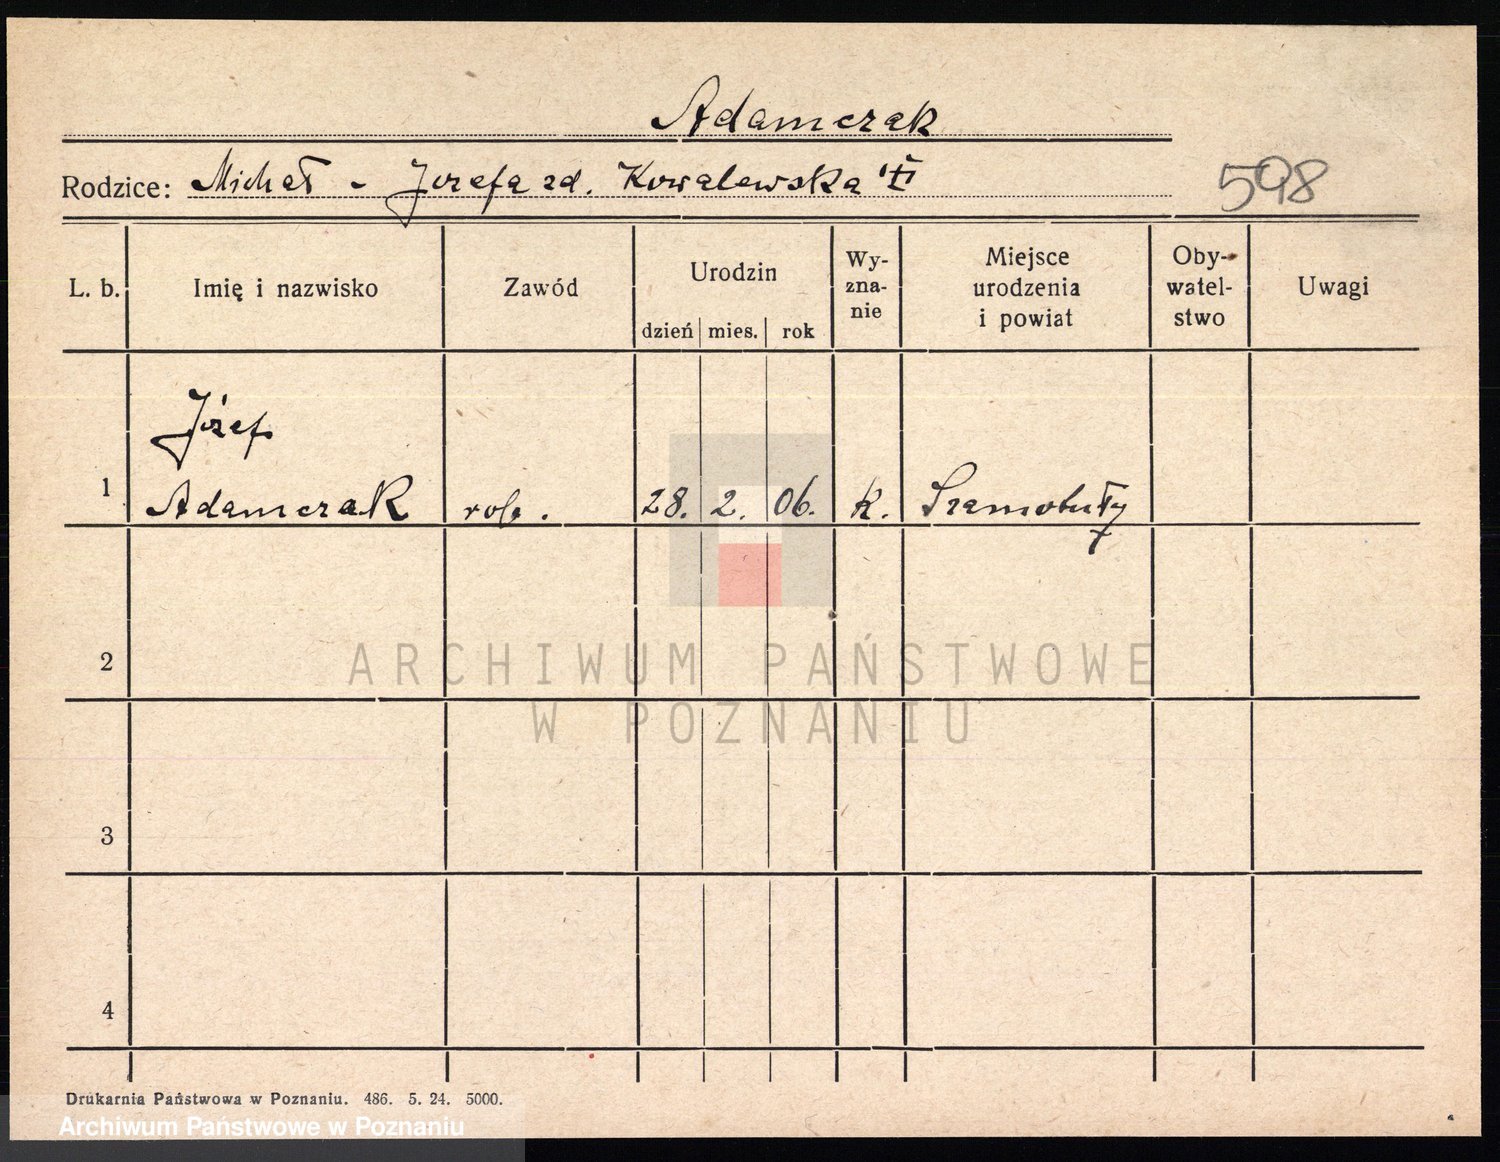 Adamczak
Rodzice: Michał - Józefa zd. Kowalewska
598
L. b. Imię i nazwisko Zawód Urodzin dzień mies. rok Wy-zna-nie Miejsce urodzenia i powiat Oby-watel-stwo Uwagi
Józef
1 Adamczak rob. 28. 2. 06. k. Szamotuły
2
ARCHIWUM PAŃSTWOWE
W POZNANIU
3
4
Drukarnia Państwowa w Poznaniu. 486. 5. 24. 5000.
Archiwum Państwowe w Poznaniu